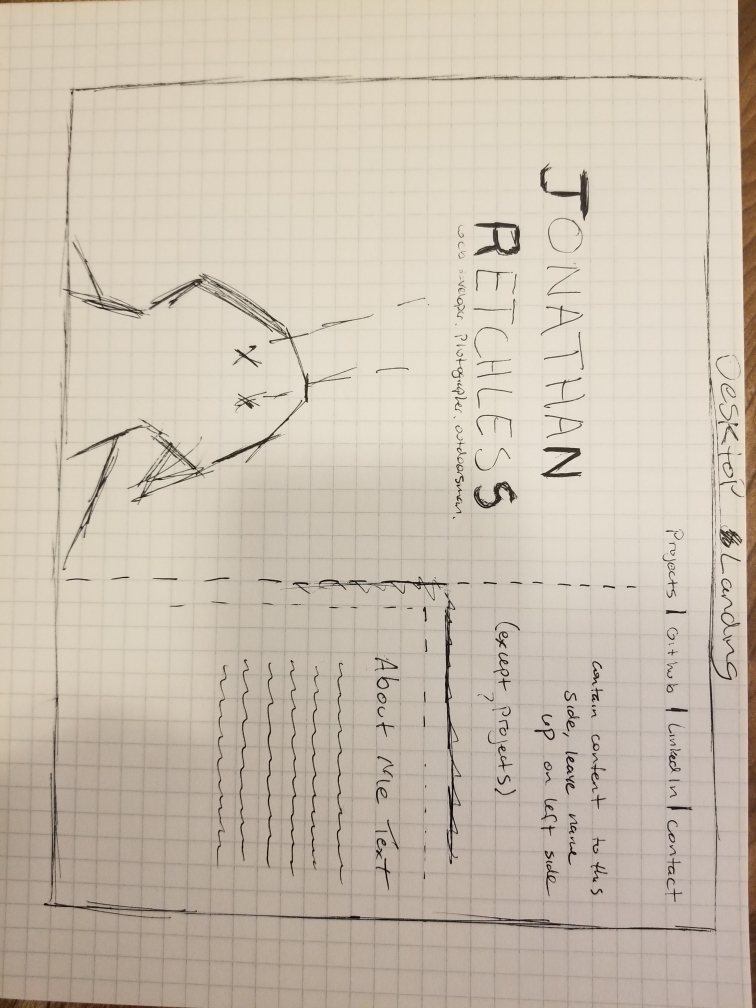 Desktop Landing
Projects | GitHub | LinkedIn | Contact
JONATHAN
RETCHLESS
web developer. Photographer. outdoorsman.
contain content to this
side, leave name
up on left side
(except projects)
?
About Me Text